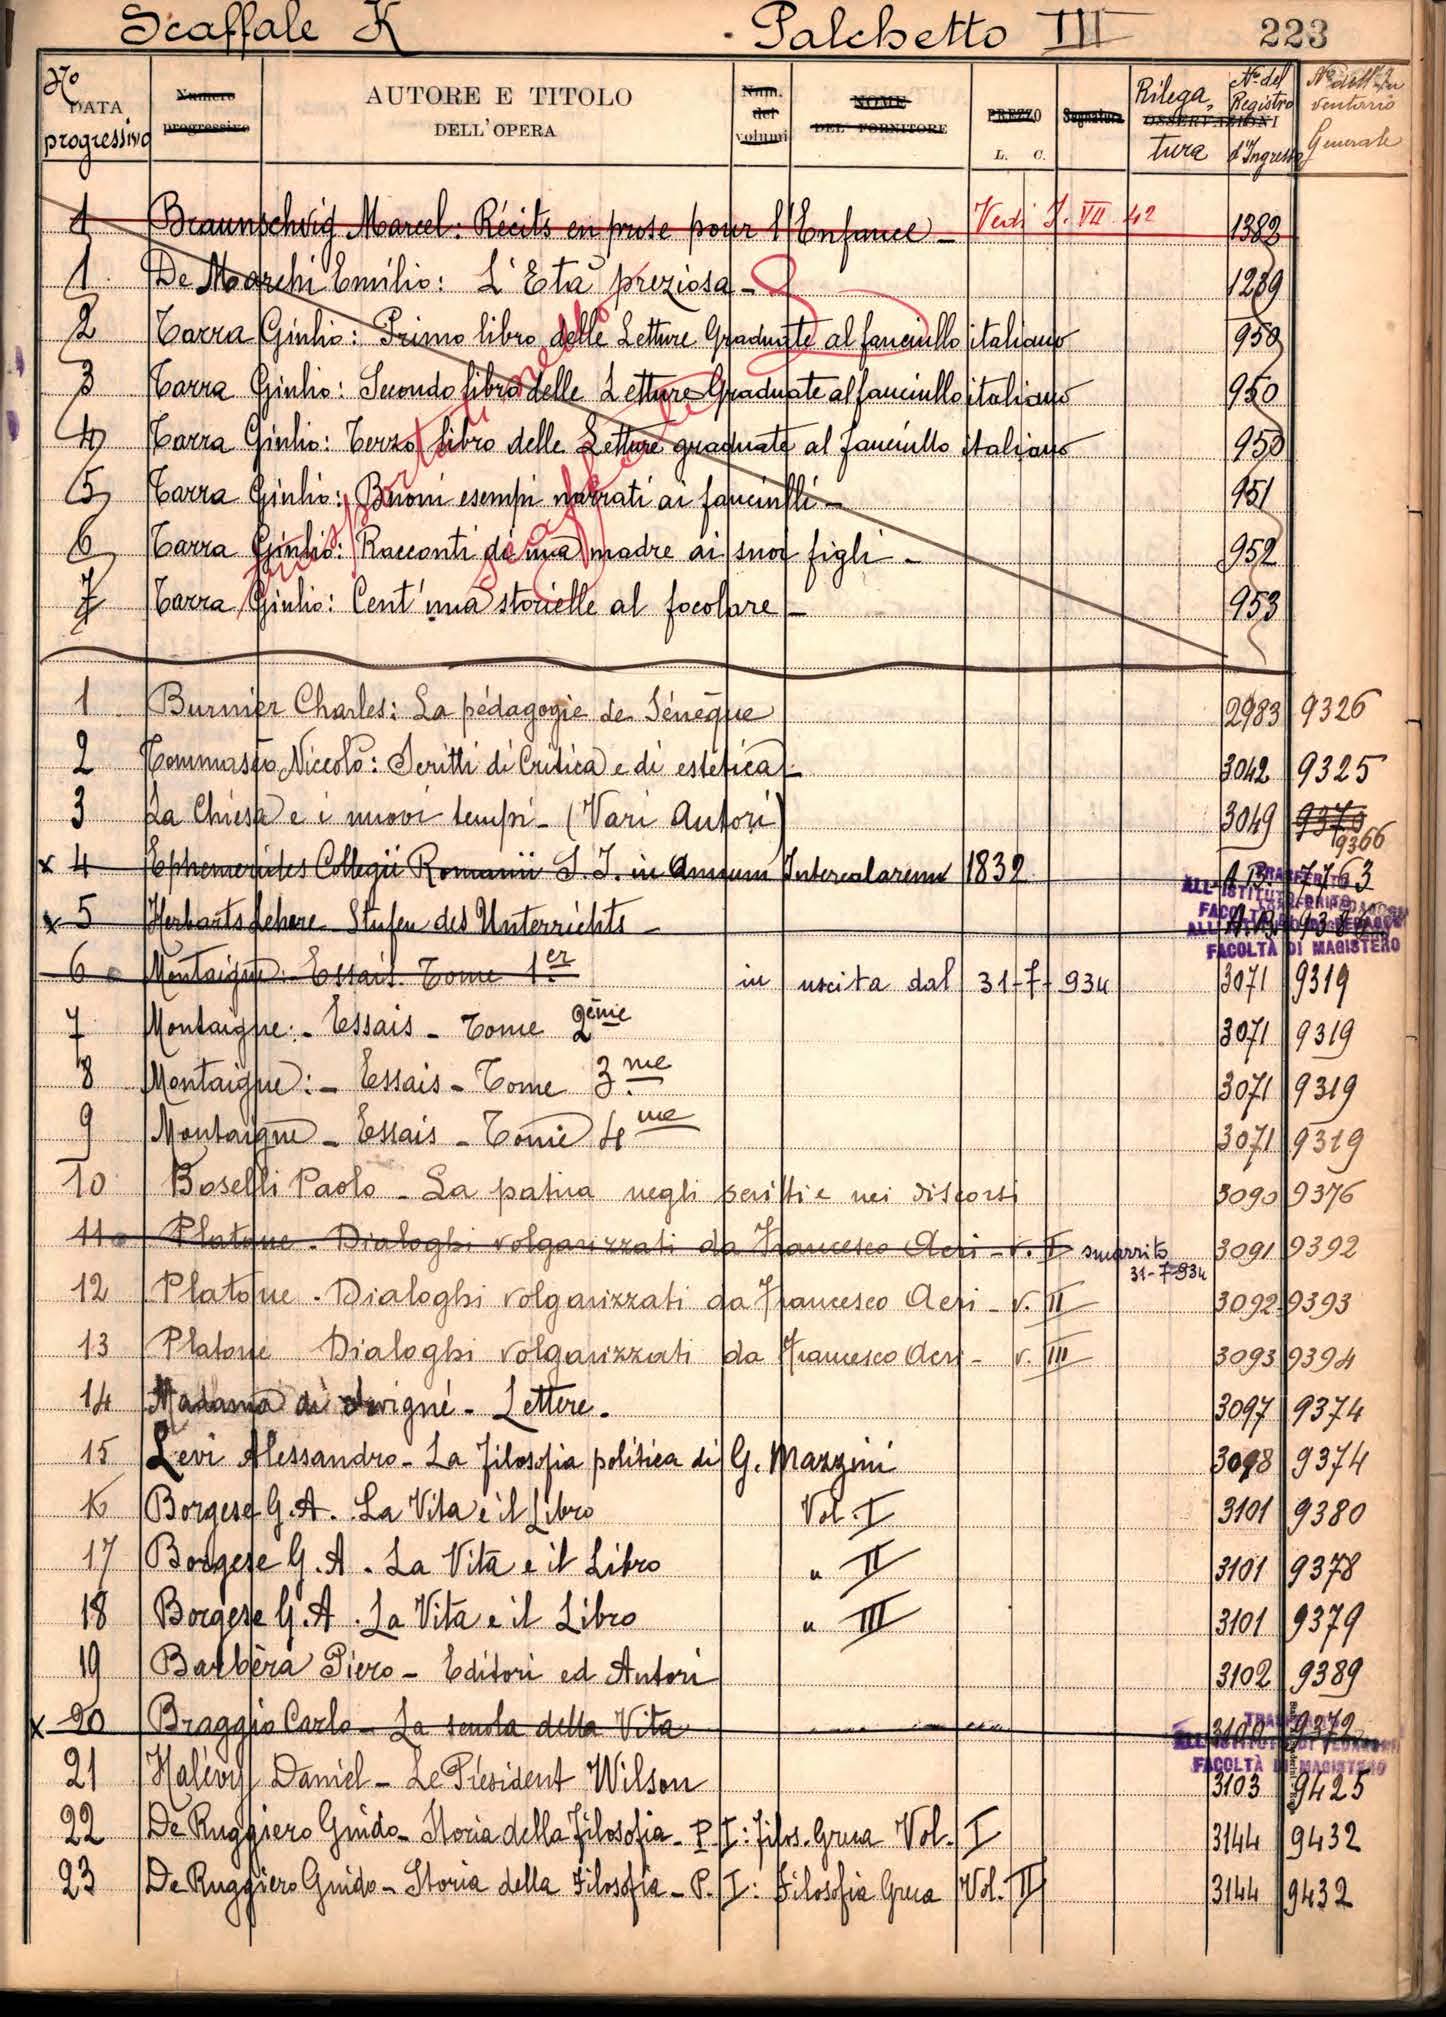 Scaffale K - Palchetto III 223
No DATA progressivo Numero progressivo AUTORE E TITOLO DELL'OPERA Num. dei volumi NOME DEL FORNITORE PREZZO L. C. Segnatura Rilegatura OSSERVAZIONI No. del Registro d'Ingresso No dell'Inventario Generale
1 Braunschvig Marcel: Récits en prose pour l'Enfance - Vedi J. VII 42 1382
1 De Marchi Emilio: L'Età preziosa - 1239
2 Tarra Giulio: Primo libro delle Letture Graduate al fanciullo italiano 950
3 Tarra Giulio: Secondo libro delle Letture Graduate al fanciullo italiano 950
4 Tarra Giulio: Terzo libro delle Letture graduate al fanciullo italiano 950
5 Tarra Giulio: Buoni esempi narrati ai fanciulli - 951
6 Tarra Giulio: Racconti di una madre ai suoi figli - 952
7 Tarra Giulio: Cent'una storielle al focolare - 953
trasportati nello scaffale
1 Burnier Charles: La pédagogie de Sénèque 2983 9326
2 Tommaseo Niccolò: Scritti di Critica e di estetica - 3042 9325
3 La Chiesa e i nuovi tempi - (Vari Autori) 3049 9370 9366
x 4 Ephemerides Collegii Romanii S. J. in Annum Intercalarem 1832 7763
TRASFERITO ALL'ISTITUTO
x 5 Herbarts Lehere Stufen des Unterrichts -
FACOLTÀ DI MAGISTERO
6 Montaigne: Essais. Tome 1er in uscita dal 31-7-934 3071 9319
7 Montaigne: - Essais - Tome 2ème 3071 9319
8 Montaigne: - Essais - Tome 3me 3071 9319
9 Montaigne - Essais - Tome 4me 3071 9319
10 Boselli Paolo - La patria negli scritti e nei discorsi 3090 9376
11 Platone - Dialoghi volgarizzati da Francesco Acri - v. I smarrito 31-7-934 3091 9392
12 Platone - Dialoghi volgarizzati da Francesco Acri - v. II 3092 9393
13 Platone Dialoghi volgarizzati da Francesco Acri - v. III 3093 9394
14 Madama di Sevigné - Lettere. 3097 9374
15 Levi Alessandro - La filosofia politica di G. Mazzini 3098 9374
16 Borgese G. A. La Vita e il Libro Vol. I 3101 9380
17 Borgese G. A. La Vita e il Libro " II 3101 9378
18 Borgese G. A. La Vita e il Libro " III 3101 9379
19 Barbèra Piero - Editori ed Autori 3102 9389
x 20 Braggio Carlo - La scuola della Vita 3100 9372
TRASFERITO ALL'ISTITUTO DI PEDAGOGIA FACOLTÀ DI MAGISTERO
21 Halévy Daniel - Le Président Wilson 3103 9425
22 De Ruggiero Guido - Storia della Filosofia - P. I: filos. Greca Vol. I 3144 9432
23 De Ruggiero Guido - Storia della Filosofia - P. I: Filosofia Greca Vol. II 3144 9432